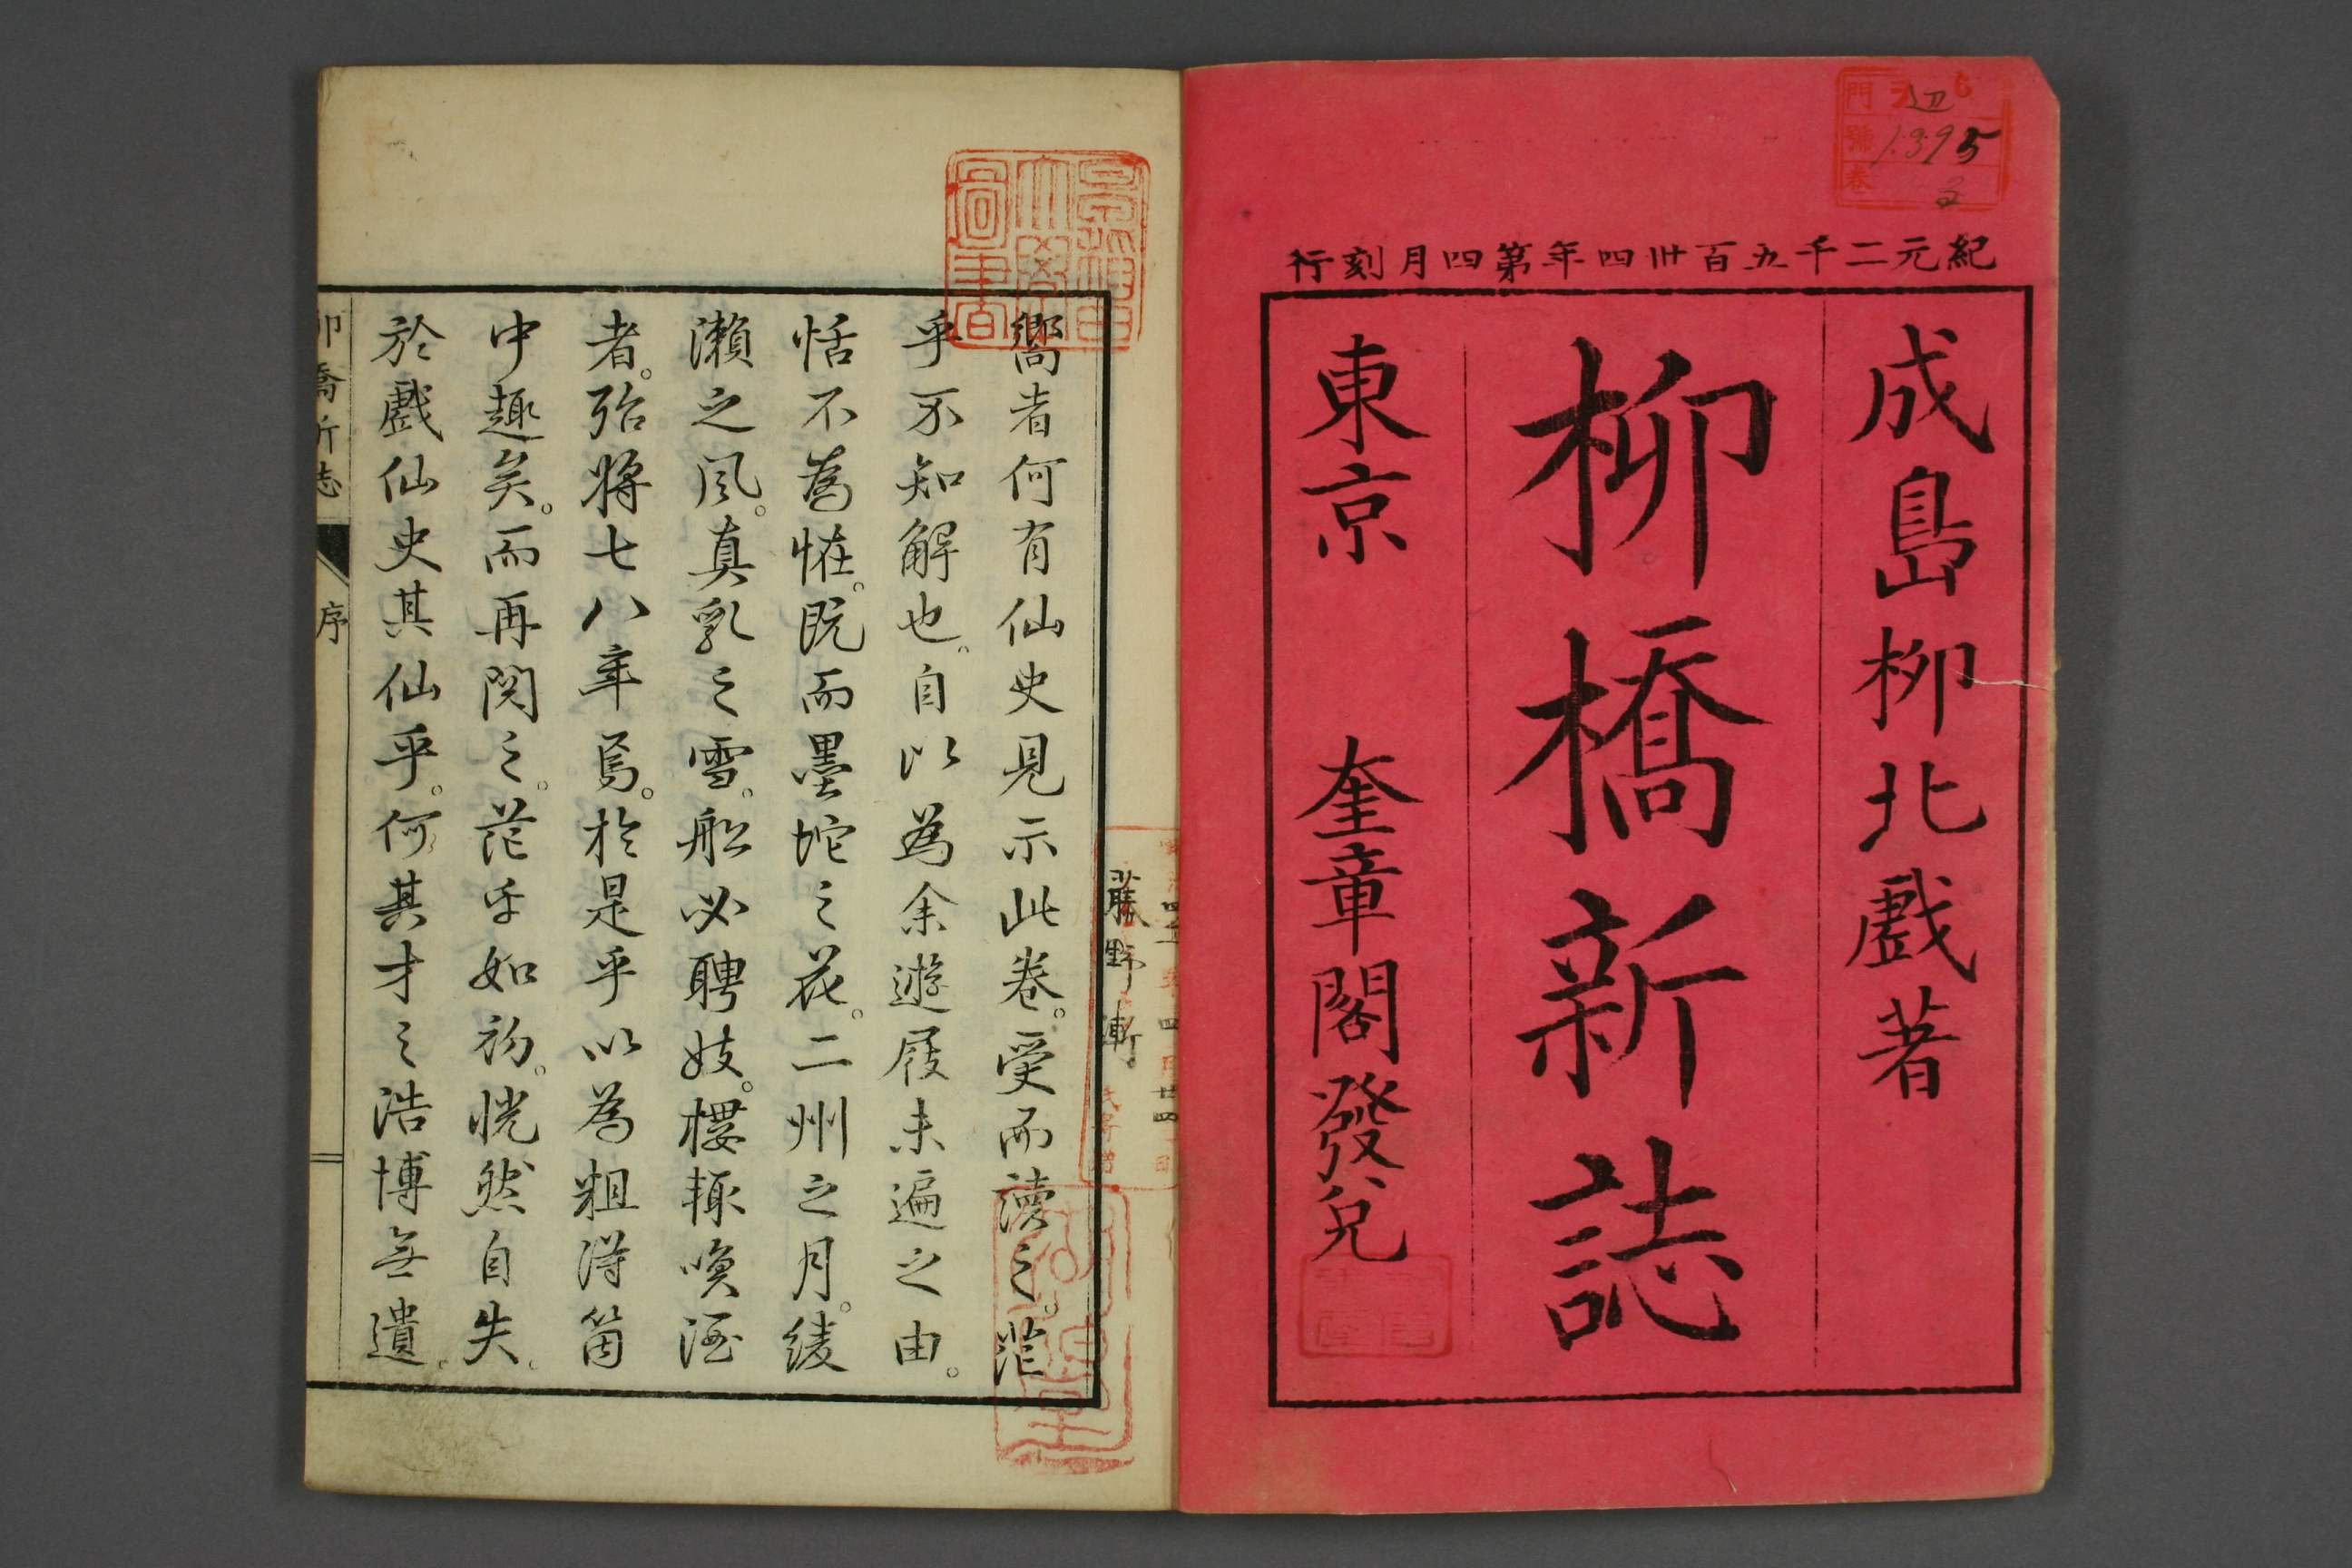 紀元二千五百卅四年第四月刻行
成島柳北戲著
柳橋新誌
東京 奎章閣發兌
門
號 1395
卷 2
藤野漸
嚮者何有仙史見示此卷。受而讀之。茫
乎不知解也。自以為余遊屐未遍之由。
恬不為怪。既而墨坨之花。二州之月。綾
瀨之風。真乳之雪。船必聘妓。樓輙喚酒
者。殆將七八年焉。於是乎以為粗得箇
中趣矣。而再閱之。茫乎如初。恍然自失。
於戲仙史其仙乎。何其才之浩博無遺。
柳橋新志 序